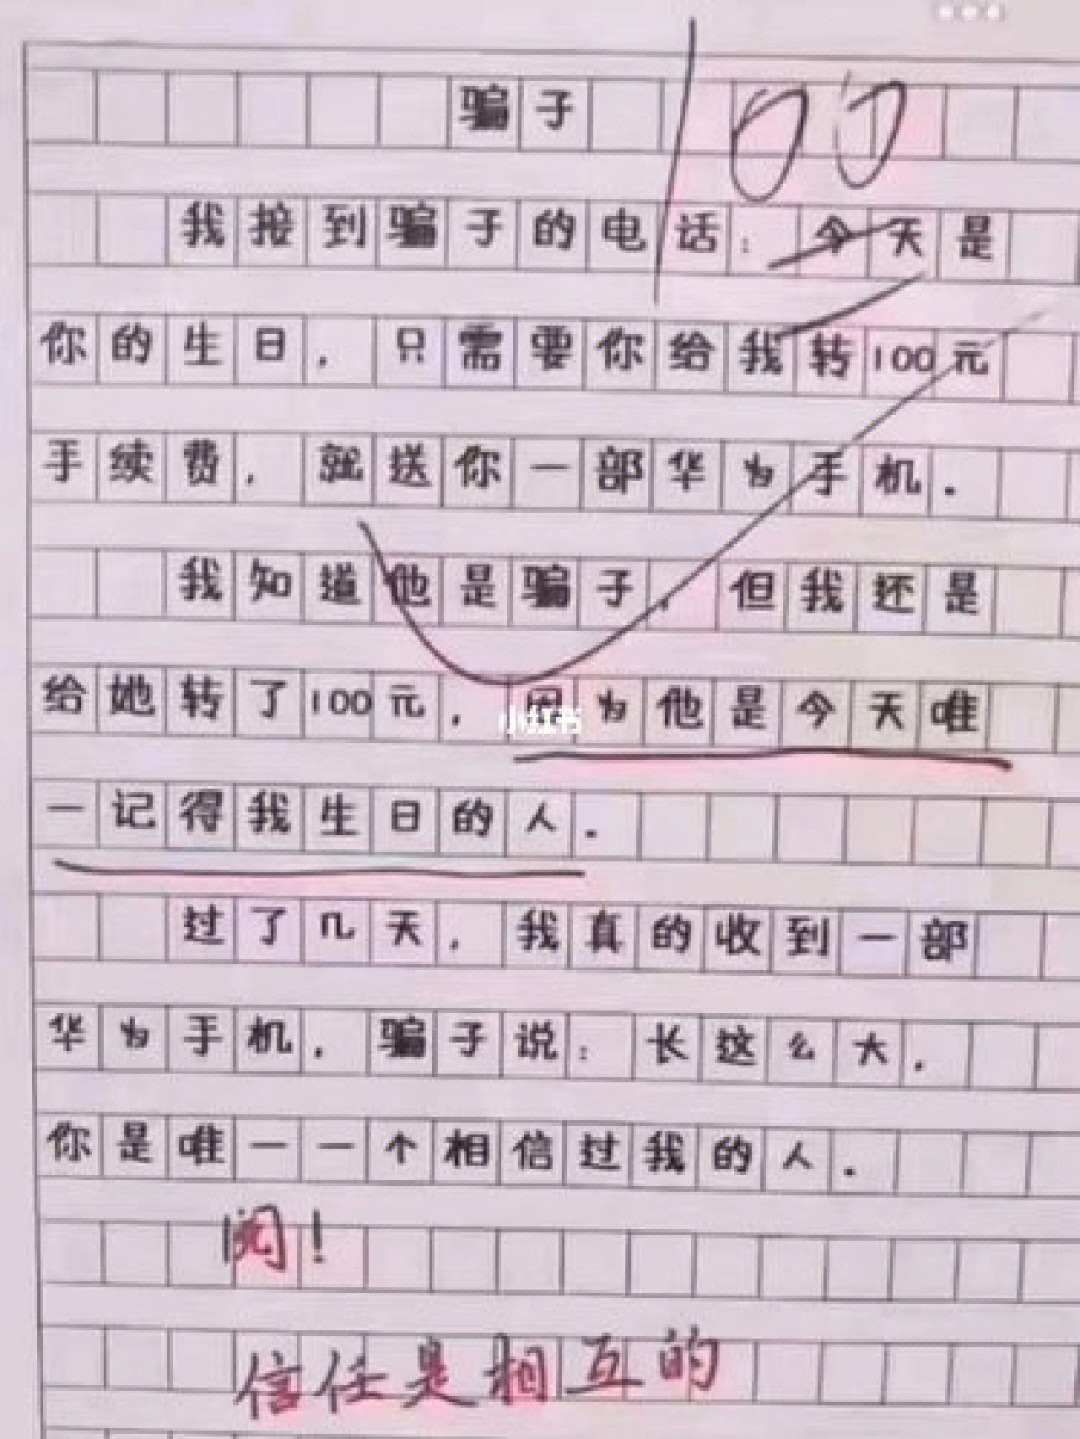 骗子
100
我接到骗子的电话：今天是
你的生日，只需要你给我转100元
手续费，就送你一部华为手机。
我知道他是骗子，但我还是
给她转了100元，因为他是今天唯
一记得我生日的人。
过了几天，我真的收到一部
华为手机，骗子说：长这么大，
你是唯一一个相信过我的人。
阅！
信任是相互的
小红书